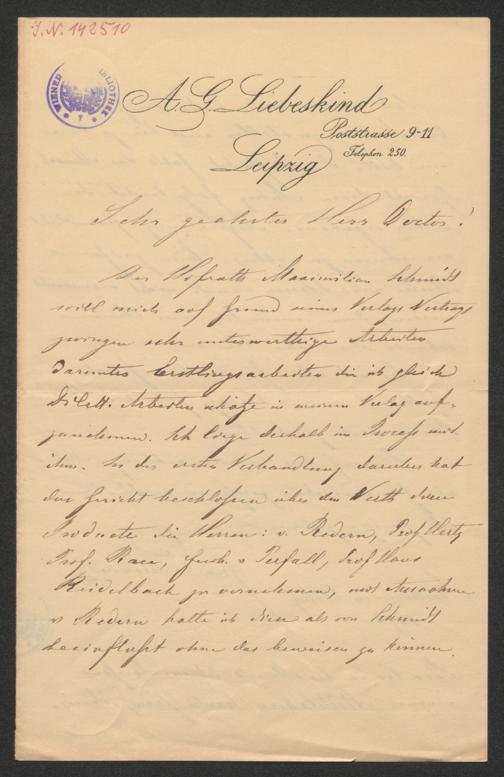 J. N. 142510
WIENER BIBLIOTHEK
A. G. Liebeskind
Poststrasse 9-11
Leipzig
Telephon 250.
Sehr geehrter Herr Doctor!
Der Hofrath Maximilian Schmidt
will mich auf Grund eines Verlags Vertrags
zwingen sehr minderwerthige Arbeiten
darunter Erstlingsarbeiten die ich gleich
Dilett. Arbeiten schätze in meinen Verlag auf-
zunehmen. Ich liege deshalb im Process mit
ihm. In der ersten Verhandlung darüber hat
das Gericht beschlossen über den Werth dieser
Producte die Herren: v. Redern, Prof Hertz
Prof. , Frch. v Perfall, Prof Hans
Reidelbach zu vernehmen, mit Ausnahme
v Redern halte ich diese als von Schmidt
beeinflusst ohne das beweisen zu können.